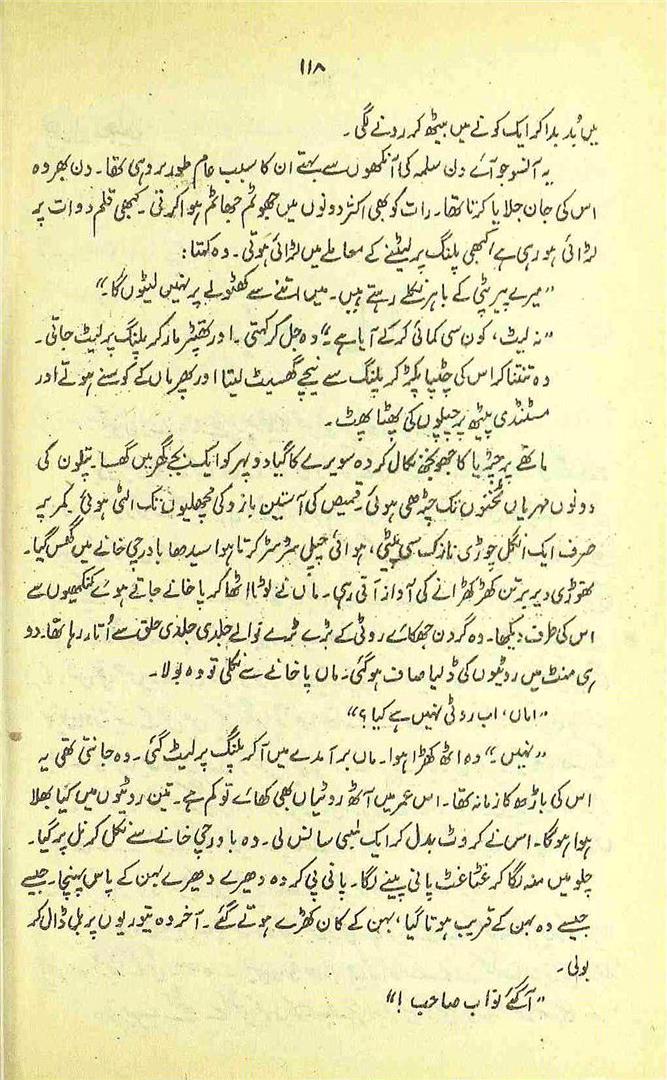 ۱۱۸
میں بُد بدا کر ایک کونے میں بیٹھ کر رونے لگی۔
یہ آنسو جو آئے دن سلمہ کی آنکھوں سے بہتے ان کا سبب عام طور پر وہی تھا۔ دن بھر وہ
اس کی جان جلایا کرتا تھا۔ رات کو بھی اکثر دونوں میں جھوٹم جھاٹم ہوا کرتی۔ کبھی قلم دوات پر
لڑائی ہو رہی ہے، کبھی پلنگ پر لیٹنے کے معاملے میں لڑائی ہوتی۔ وہ کہتا:
"میرے پیر پٹی کے باہر نکلے رہتے ہیں۔ میں اتنے سے کھٹولے پر نہیں لیٹوں گا۔"
"نہ لیٹ، کون سی کمائی کر کے آیا ہے" وہ جل کر کہتی۔ اور تھپڑ مار کر پلنگ پر لیٹ جاتی۔
وہ تنتنا کر اس کی چٹیا پکڑ کر پلنگ سے نیچے گھسیٹ لیتا اور پھر ماں کے کوسنے ہوتے اور
مسٹنڈی پیٹھ پر چپلوں کی پھٹا پھٹ۔
ماتھے پر چڑیا کا جھونجھ نکال کر وہ سویرے کا گیا دوپہر کو ایک بجے گھر میں گھسا۔ پتلون کی
دونوں مہریاں ٹخنوں تک چڑھی ہوئی۔ قمیص کی آستین بازو کی مچھلیوں تک الٹی ہوئی۔ کمر پر
صرف ایک انگل چوڑی نازک سی پیٹی، ہوائی چپل سڑ سڑ کرتا ہوا سیدھا باورچی خانے میں گھس گیا۔
تھوڑی دیر برتن کھڑکھڑانے کی آواز آتی رہی۔ ماں نے لوٹا اٹھا کر پاخانے جاتے ہوئے کنکھیوں سے
اس کی طرف دیکھا۔ وہ گردن جھکائے روٹی کے بڑے بڑے نوالے جلدی جلدی حلق سے اُتار رہا تھا۔ دو
ہی منٹ میں روٹیوں کی ڈلیا صاف ہو گئی۔ ماں پاخانے سے نکلی تو وہ بولا۔
"اماں، اب روٹی نہیں ہے کیا؟"
"نہیں" وہ اٹھ کھڑا ہوا۔ ماں برآمدے میں آ کر پلنگ پر لیٹ گئی۔ وہ جانتی تھی یہ
اس کی باڑھ کا زمانہ تھا۔ اس عمر میں آٹھ روٹیاں بھی کھائے تو کم ہے۔ تین روٹیوں میں کیا بھلا
ہوا ہوگا۔ اس نے کروٹ بدل کر ایک لمبی سانس لی۔ وہ باورچی خانے سے نکل کر نل پر گیا۔
چلو میں منہ لگا کر غٹا غٹ پانی پینے لگا۔ پانی پی کر وہ دھیرے دھیرے بہن کے پاس پہنچا۔ جیسے
جیسے وہ بہن کے قریب ہوتا گیا، بہن کے کان کھڑے ہوتے گئے۔ آخر وہ تیوریوں پر بل ڈال کر
بولی۔
"آ گئے نواب صاحب!"